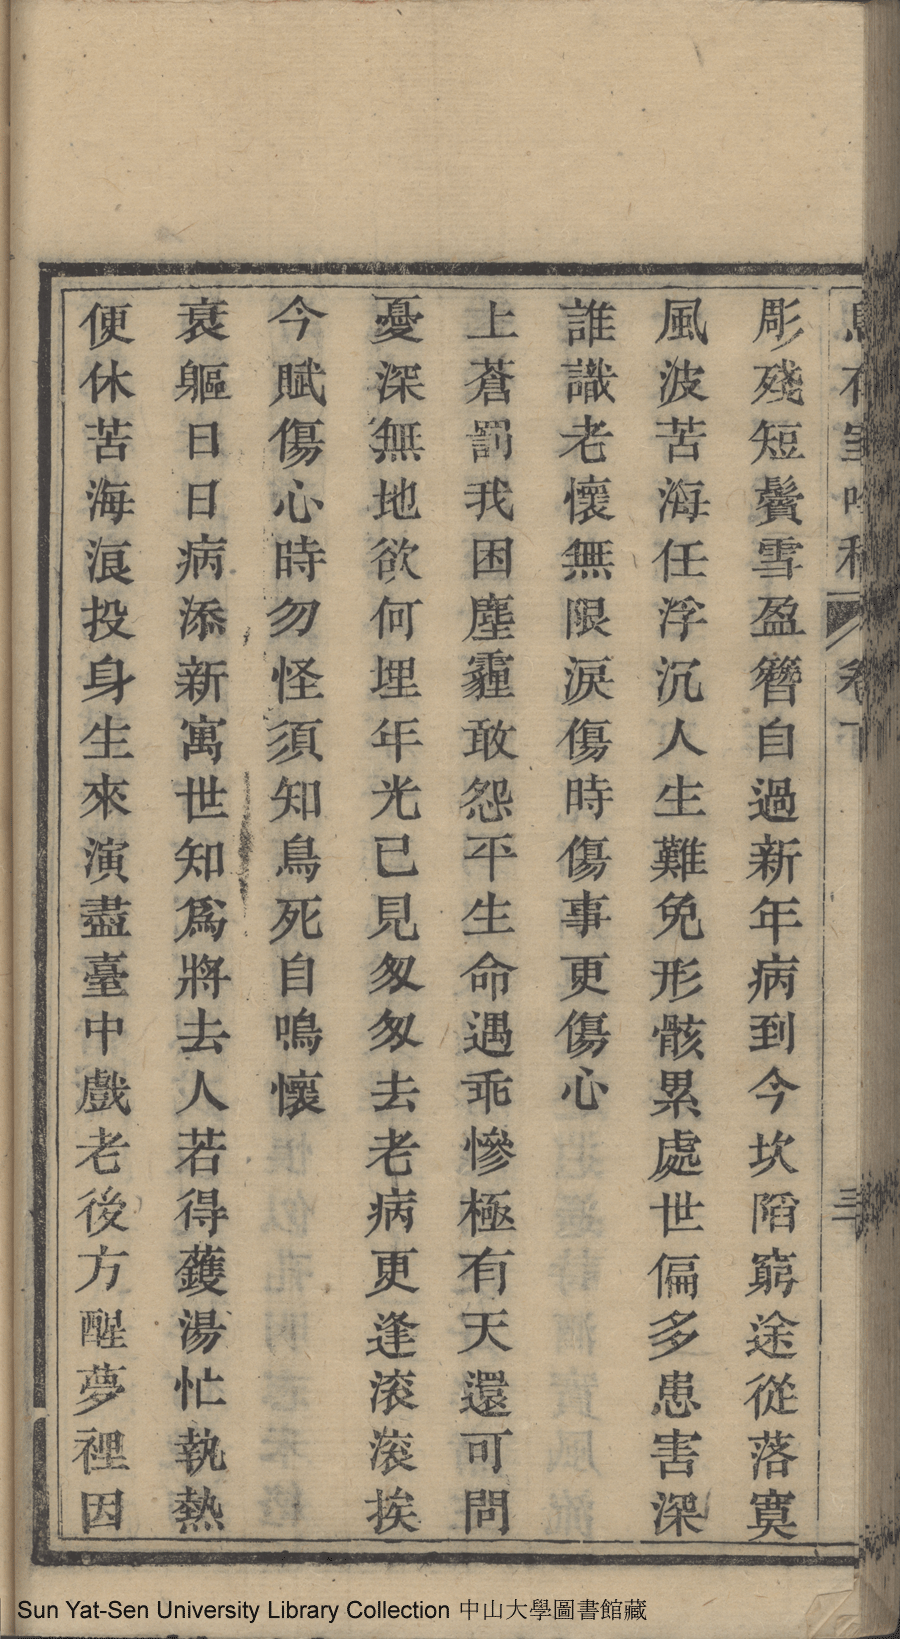 卷下
三
彫殘短鬢雪盈簪自過新年病到今坎陷窮途從落寞
風波苦海任浮沉人生難免形骸累處世偏多患害深
誰識老懷無限淚傷時傷事更傷心
上蒼罰我困塵霾敢怨平生命遇乖慘極有天還可問
憂深無地欲何埋年光已見匆匆去老病更逢滚滚挨
今賦傷心時勿怪須知鳥死自鳴懷
衰軀日日病添新寓世知爲將去人若得鑊湯忙執熱
便休苦海浪投身生來演盡臺中戲老後方醒夢裡因
Sun Yat-Sen University Library Collection 中山大學圖書館藏